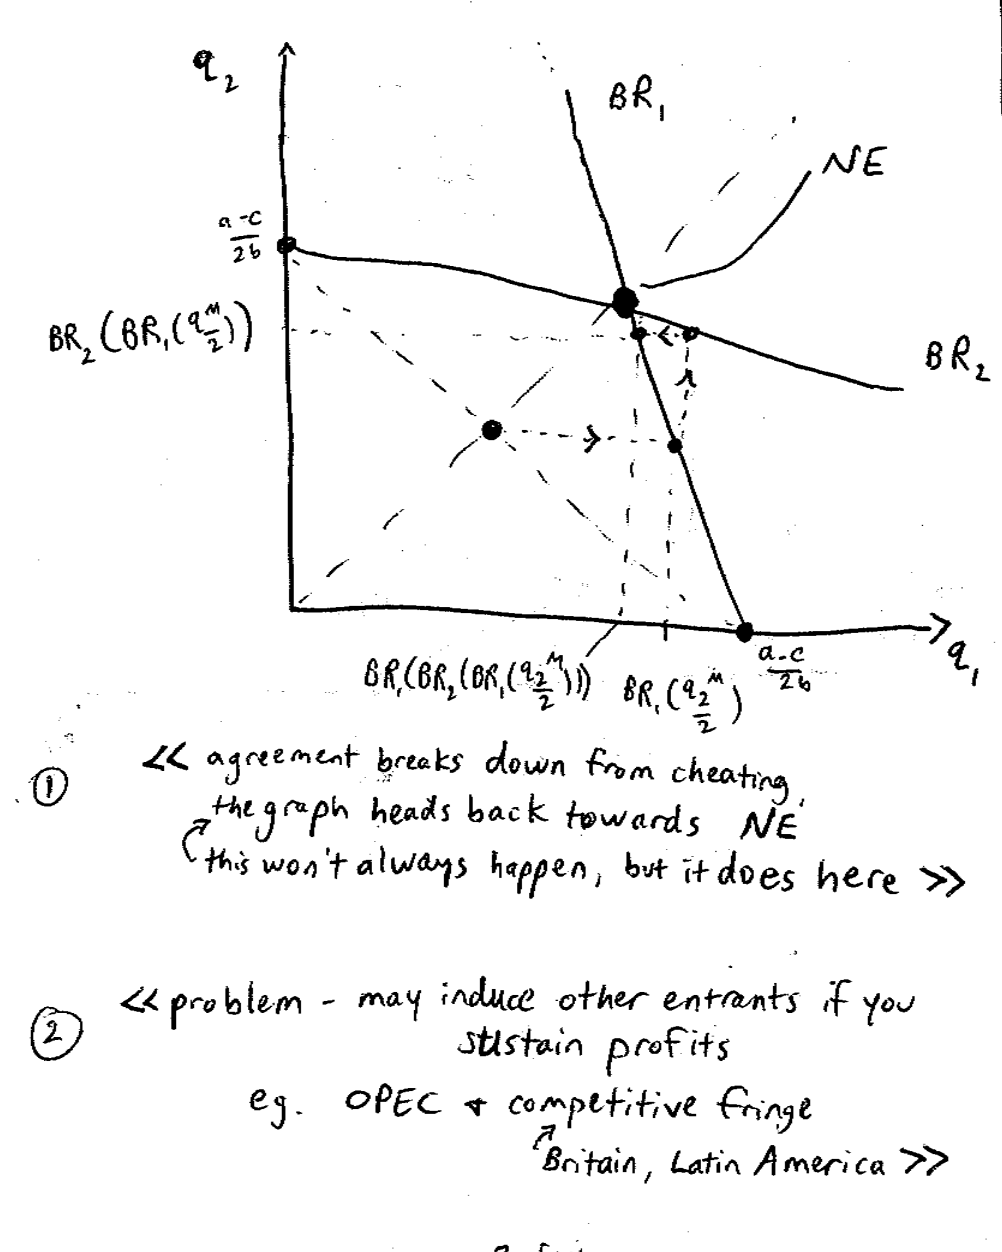 q₂
BR₁
NE
a-c
2b
BR₂(BR₁(qᴹ/2))
BR₂
q₁
BR₁(BR₂(BR₁(q₂ᴹ/2)))
BR₁(q₂ᴹ/2)
a-c
2b
① << agreement breaks down from cheating,
the graph heads back towards NE
this won't always happen, but it does here >>
② << problem - may induce other entrants if you
sustain profits
eg. OPEC + competitive fringe
Britain, Latin America >>